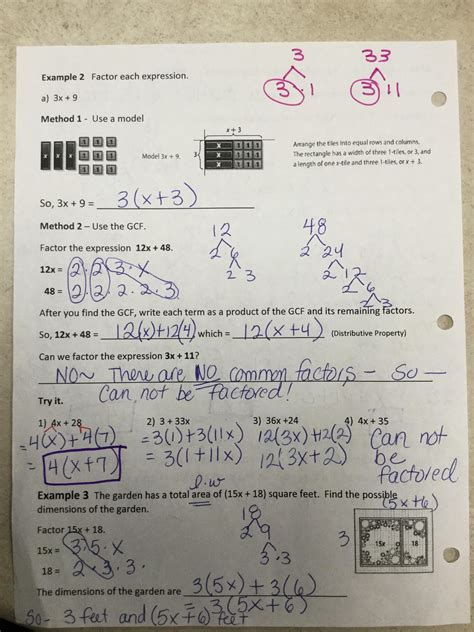 3 33
Example 2 Factor each expression.
3 · 1 3 11
a) 3x + 9
Method 1 - Use a model
x + 3
x x x 1 1 1
1 1 1
1 1 1
Model 3x + 9.
3
x 1 1 1
x 1 1 1
x 1 1 1
Arrange the tiles into equal rows and columns.
The rectangle has a width of three 1-tiles, or 3, and
a length of one x-tile and three 1-tiles, or x + 3.
So, 3x + 9 = 3(x+3)
Method 2 – Use the GCF.
12 48
Factor the expression 12x + 48.
2 6 2 24
12x = 2 · 2 · 3 · x
2 3 2 12
48 = 2 · 2 · 2 · 2 · 3
2 6
2 3
After you find the GCF, write each term as a product of the GCF and its remaining factors.
So, 12x + 48 = 12(x)+12(4) which = 12(x+4) (Distributive Property)
Can we factor the expression 3x + 11?
NO~ There are NO common factors – So –
Can not be factored!
Try it.
1) 4x + 28 2) 3 + 33x 3) 36x +24 4) 4x + 35
=4(x)+4(7) =3(1)+3(11x) 12(3x)+12(2) Can not
= 4(x+7) = 3(1+11x) 12(3x+2) be
factored
l·w
Example 3 The garden has a total area of (15x + 18) square feet. Find the possible
dimensions of the garden.
(5x+6)
18
Factor 15x + 18.
2 9
3
15x 18
15x = 3·5·x
3·3
18 = 2·3·3·
The dimensions of the garden are 3(5x)+3(6)
= 3(5x+6)
So- 3 feet and (5x+6) feet